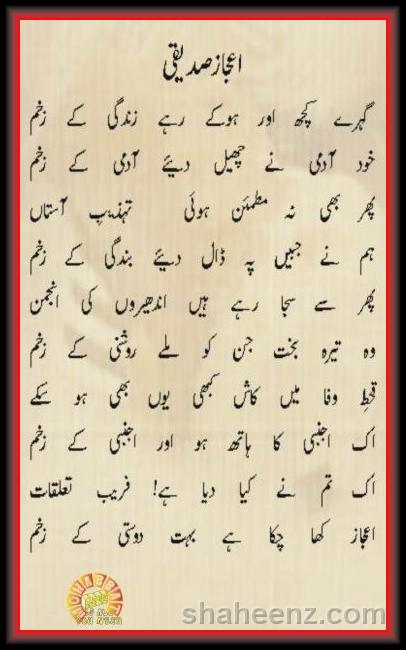 اعجاز صدیقی
گہرے کچھ اور ہوکے رہے زندگی کے زخم
خود آدمی نے چھیل دیئے آدمی کے زخم
پھر بھی نہ مطمئن ہوئی تہذیبِ آستاں
ہم نے جبیں پہ ڈال دیئے بندگی کے زخم
پھر سے سجا رہے ہیں اندھیروں کی انجمن
وہ تیرہ بخت جن کو ملے روشنی کے زخم
قحطِ وفا میں کاش کبھی یوں بھی ہو سکے
اک اجنبی کا ہاتھ ہو اور اجنبی کے زخم
اک تم نے کیا دیا ہے! فریب تعلقات
اعجاز کھا چکا ہے بہت دوستی کے زخم
shaheenz.com